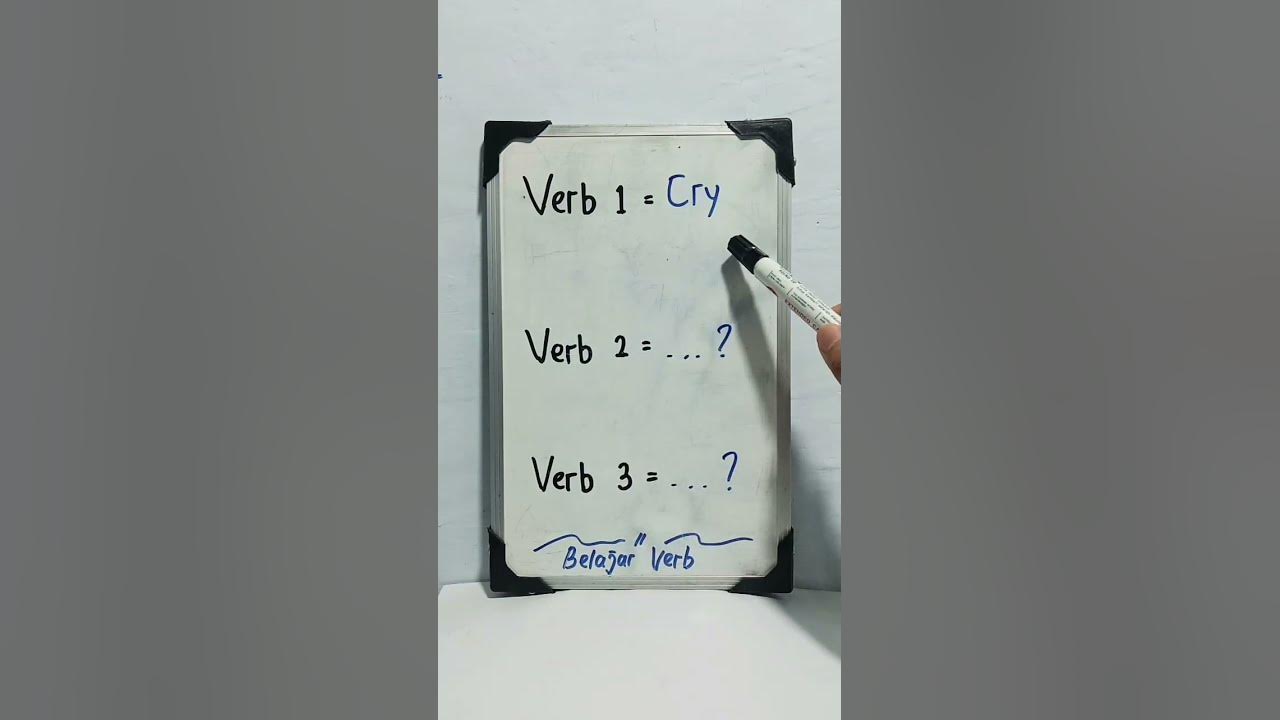 Verb 1 = Cry
Verb 2 = ... ?
Verb 3 = ... ?
Belajar Verb